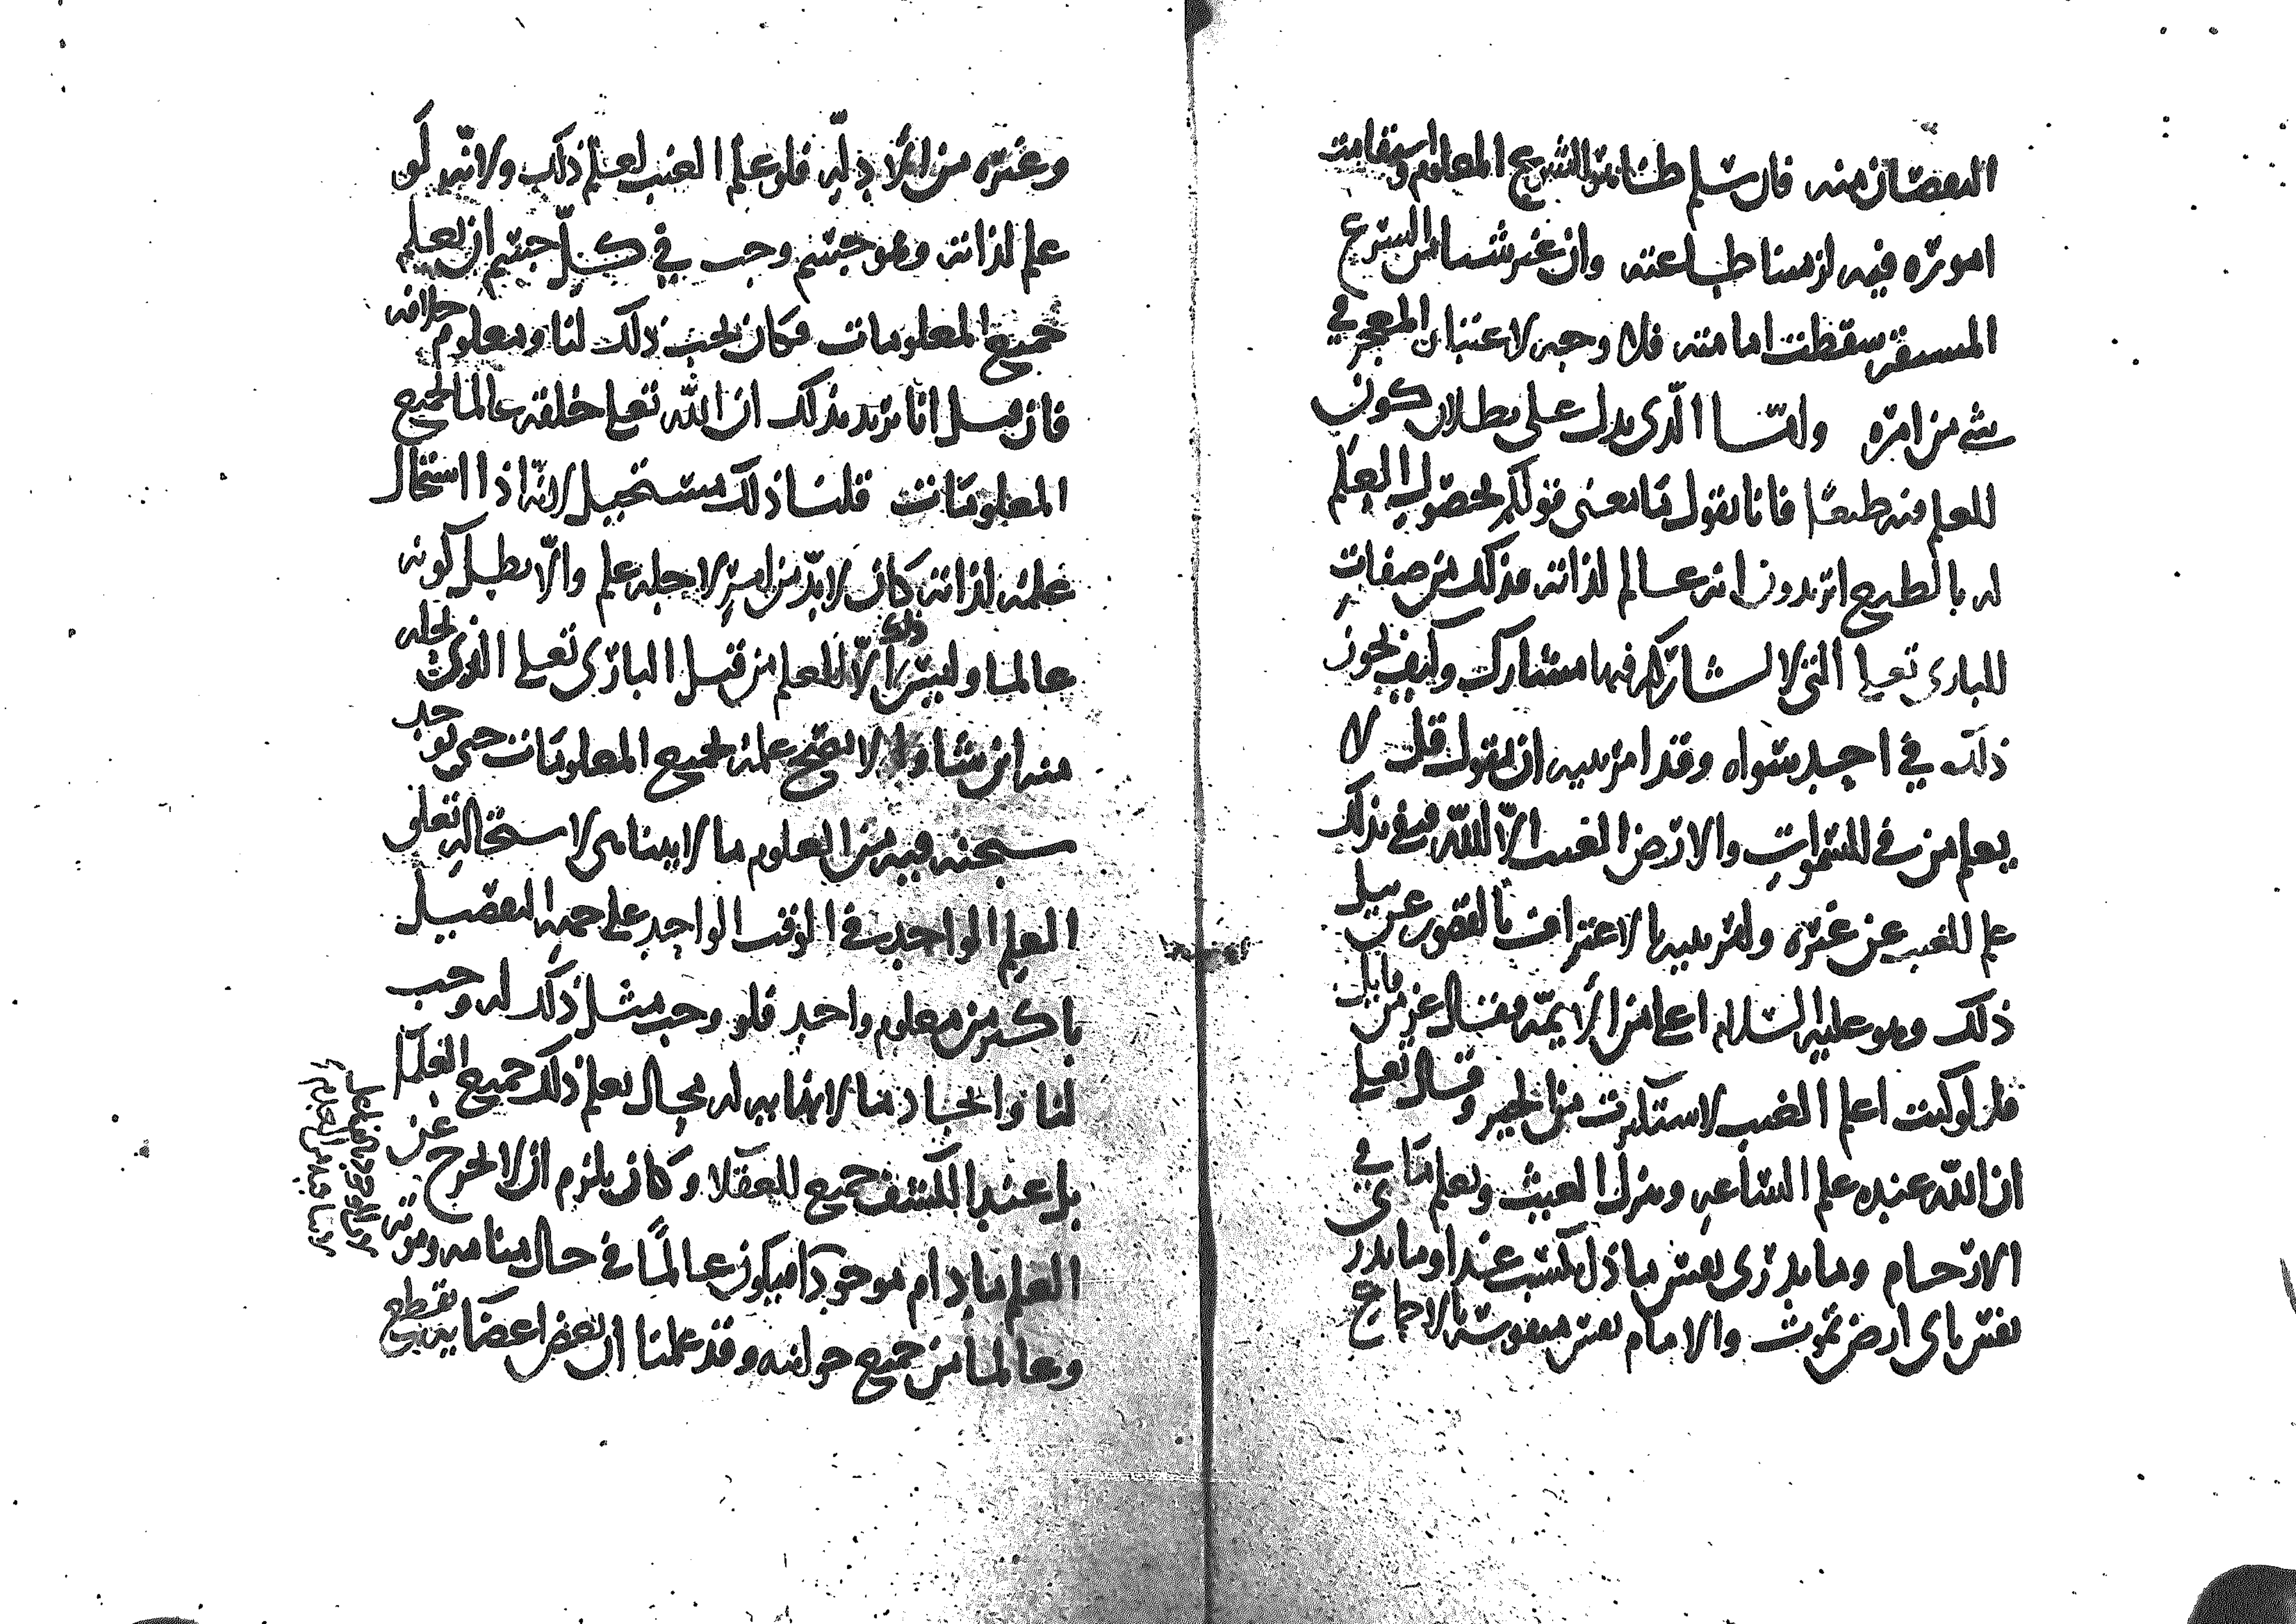 النقصان منه فان سلم ظاهر الشرع المعلوم واستقامت
اموره فيه لزمنا طاعته وان غير شيئا من الشرع
المستقر سقطت امامته فلا وجه لاعتبار المعجز في
شي من امره واما الذي يدل على بطلان كون
العلم فيه طبعا فانا نقول ما معنى قولكم بحصول العلم
له بالطبع اتريدون انه عالم لذاته فذلك من صفات
الباري تعلى التي لا يشاركه فيها مشارك وكيف يجوز
ذلك في احد سواه وقد امر نبيه ان يقول قل لا
يعلم من في السموات والارض الغيب الا الله فنفى بذلك
علم الغيب عن غيره وامر نبيه بالاعتراف بالقصور عن نيل
ذلك وهو عليه السلام اعلى من الأيمة فقال عز من قايل
قل لو كنت اعلم الغيب لاستكثرت من الخير وقال تعلى
ان الله عنده علم الساعه وينزل الغيث ويعلم ما في
الارحام وما تدري نفس ماذا تكسب غدا وما تدري
نفس باي ارض تموت والامام نفس منفوسة بالاجماع
وغيره من الأدلة فلو علم الغيب لعلم ذلك ولانه لو
علم لذاته وهو جسم وجب في كل جسم ان يعلم
جميع المعلومات فكان يجب ذلك لنا ومعلوم خلافه
فان قيل انا نريد بذلك ان الله تعلى خلقه عالما بجميع
المعلومات قلنا ذلك مستحيل لانه اذا استحال
علمه لذاته كان لا بد من امر لاجله علم والا بطل كونه
عالما وليس ذلك الا للعلم من قبل الباري تعلى الذي يجعله
فيه ان شا ولا يصح علمه بجميع المعلومات حتى يوجد
سبحنه فيه من العلوم ما لا يتناهى لاستحالة تعلق
العلم الواحد في الوقت الواحد على جهة التفصيل
باكثر من معلوم واحد فلو وجب مثل ذلك له وجب
لنا وايجاد ما لا نهاية له محال يعلم ذلك جميع العلما
بل عند الكشف جميع العقلا وكان يلزم ان لا يخرج عن
العلم ما دام موجودا فيكون عالما في حال منامه وموته
وعالما من جميع جوانبه وقد علمنا ان بعض اعضايه يقطع